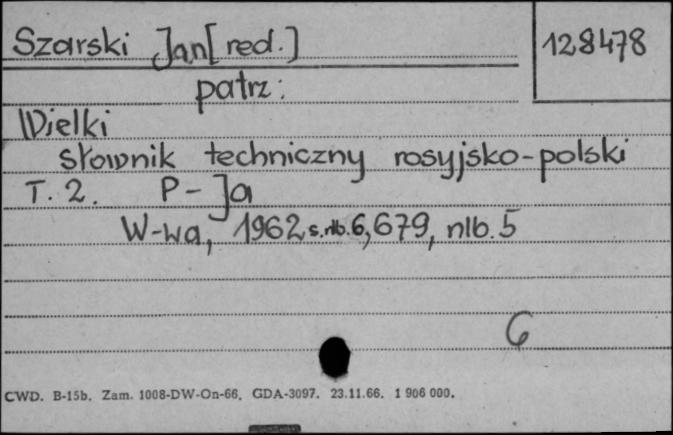 Szarski Jan [red.]
128478
patrz:
Wielki
słownik techniczny rosyjsko-polski
T. 2. P-Ja
W-wa, 1962 s. nlb. 6, 679, nlb. 5
6
CWD. B-15b. Zam. 1008-DW-On-66. GDA-3097. 23.11.66. 1 906 000.